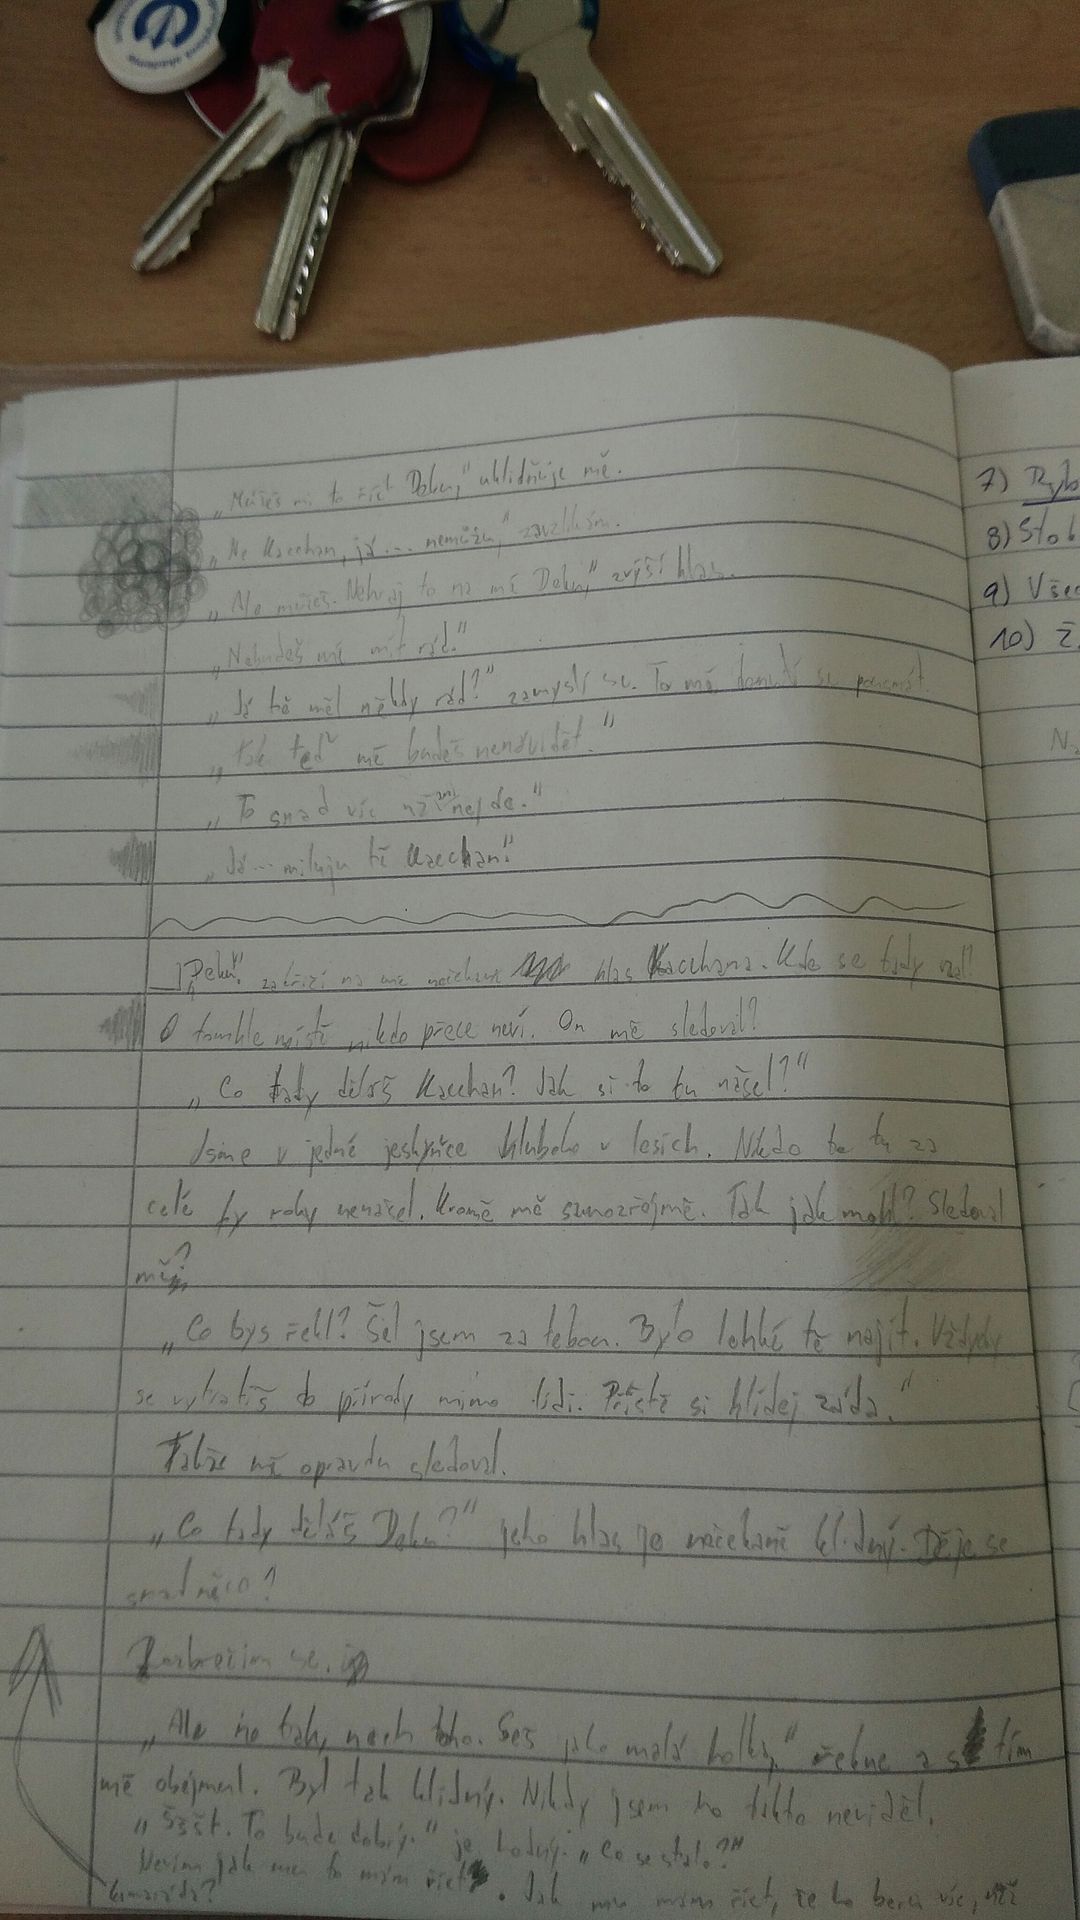 „Můžeš mi to říct Deku," uklidňuje mě.
„Ne Kacchan, já... nemůžu," zavzlikám.
„Ale můžeš. Nehraj to na mě Deku," zvýší hlas.
„Nebudeš mě mít rád."
„Já tě měl někdy rád?" zamyslí se. To mě donutí se pousmát.
„Tak teď mě budeš nenávidět."
„To snad víc už ani nejde."
„Já... miluju tě Kacchan."
„Deku!" zakřičí na mě nečekaně hlas Kacchana. Kde se tady vzal?
O tomhle místě nikdo přece neví. On mě sledoval?
„Co tady děláš Kacchan? Jak si to tu našel?"
Jsme v jedné jeskyňce hluboko v lesích. Nikdo to tu za
celé ty roky nenašel. Kromě mě samozřejmě. Tak jak mohl? Sledoval
mě?
„Co bys řekl? Šel jsem za tebou. Bylo lehké tě najít. Vždycky
se vytratíš do přírody mimo lidi. Příště si hlídej záda."
Takže mě opravdu sledoval.
„Co tady děláš Deku?" jeho hlas je nečekaně klidný. Děje se
snad něco?
Rozbrečím se.
„Ale no tak, nech toho. Seš jako malá holka," řekne a s tím
mě obejmul. Byl tak klidný. Nikdy jsem ho takto neviděl.
„Šššt. To bude dobrý." je hodný. „Co se stalo?"
Nevím jak mu to mám říct. Jak mu mám říct, že ho beru víc, než
kamaráda?
7)
8)
9) Všec
10) Ž